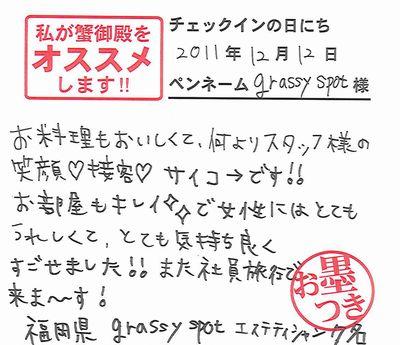 私が蟹御殿を
オススメ
します!!
チェックインの日にち
2011年12月12日
ペンネーム grassy spot 様
お料理もおいしくて、何よりスタッフ様の
笑顔♡接客♡ サイコ→です!!
お部屋もキレイ✧✧で女性にはとても
うれしくて、とても気持ち良く
すごせました!! また社員旅行で
来ま〜す!
お墨つき
福岡県 grassy spot エステティシャン 7名